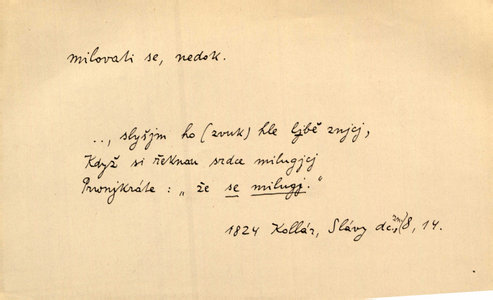 milovati se, nedok.
.., slyšjm ho (zvuk) hle ljbě znjcj,
Když si řeknau srdce milugjcj
Prwnjkráte : „ že se milugj."
1824 Kollár, Slávy dc, 8, 14.